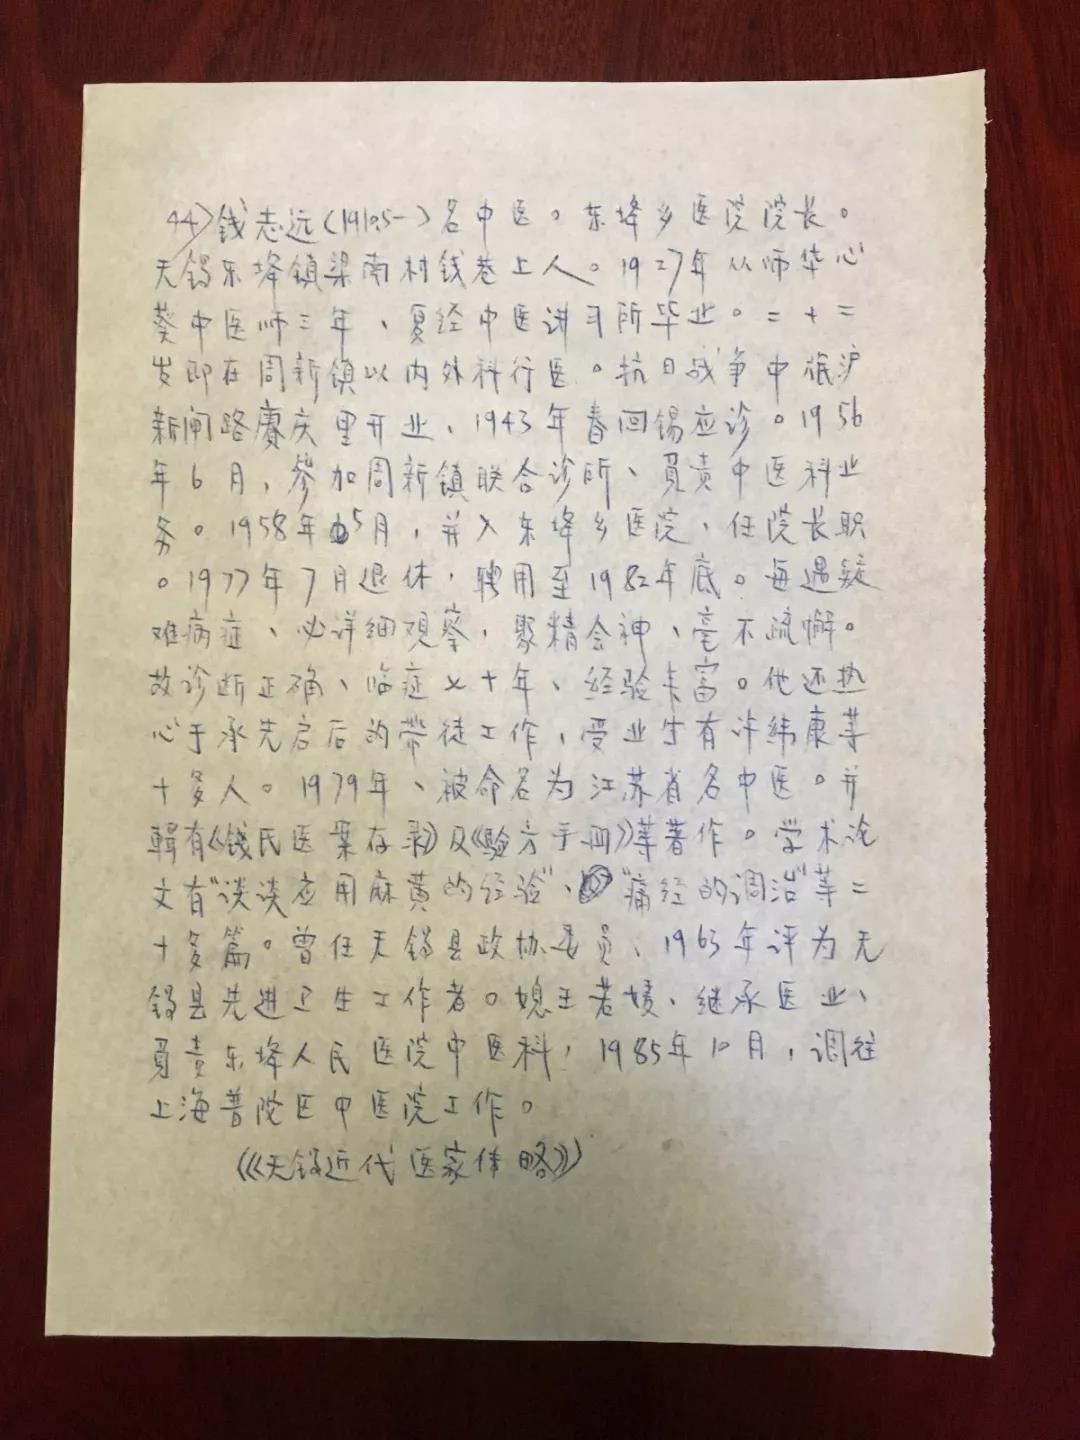 44)钱志远(1905-)名中医。东垾乡医院院长。
无锡东垾镇梁南村钱巷上人。1927年从师华心
葵中医师三年、夏经中医讲习所毕业。二十二
岁即在周新镇以内外科行医。抗日战争中旅沪
新闸路赓庆里开业、1943年春回锡应诊。1956
年6月，参加周新镇联合诊所、负责中医科业
务。1958年5月，并入东垾乡医院，任院长职
。1977年7月退休，聘用至1982年底。每遇疑
难病症、必详细观察，聚精会神、毫不疏懈。
故诊断正确、临症七十年、经验丰富。他还热
心于承先启后的带徒工作，受业生有许纬康等
十多人。1979年、被命名为江苏省名中医。并
辑有《钱氏医案存录》及《验方手册》等著作。学术论
文有"谈谈应用麻黄的经验"、"痛经的调治"等二
十多篇。曾任无锡县政协委员、1963年评为无
锡县先进卫生工作者。媳王若媖、继承医业、
负责东垾人民医院中医科，1985年10月，调往
上海普陀区中医院工作。
(《无锡近代医家传略》)